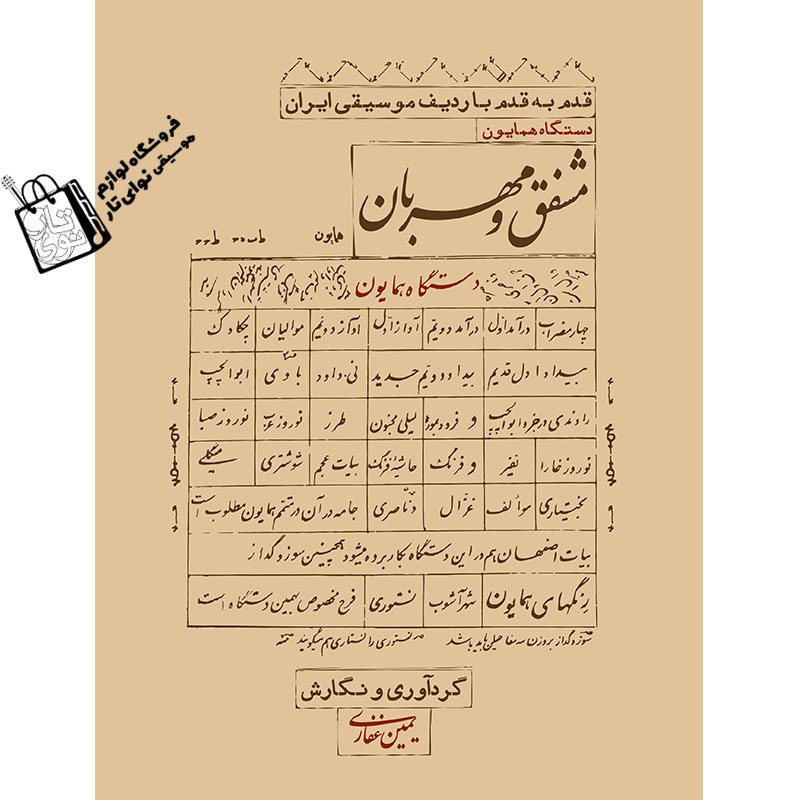 قدم به قدم با ردیف موسیقی ایران
دستگاه همایون
مشفق و مهربان
همایون
دستگاه همایون
چهار مضراب درآمد اول درآمد دویم آواز اول آواز دویم موالیان چکاوک
بیداد اول قدیم بیداد دویم جدید نی داود باوی ابوالچپ
راوندی در جزو ابوالچپ و فرود بموره لیلی مجنون طرز نوروز عرب نوروز صبا
نوروز خارا نفیر و فرنگ حاشیه فرنگ بیات عجم شوشتری میگلی
بختیاری موألف غزال دناصری جامه در آن در متمم همایون مطلوب است
بیات اصفهان هم در این دستگاه بکار برده میشود همچنین سوز و گداز
رنگهای همایون شهرآشوب نستوری فرح مخصوص بهمین دستگاه است
سوز و گداز بر وزن سه مفاعیلن باید باشد
نستوری را نستاری هم میگویند
گردآوری و نگارش
یمین غفاری
فروشگاه لوازم
موسیقی نوای تار
نوای تار